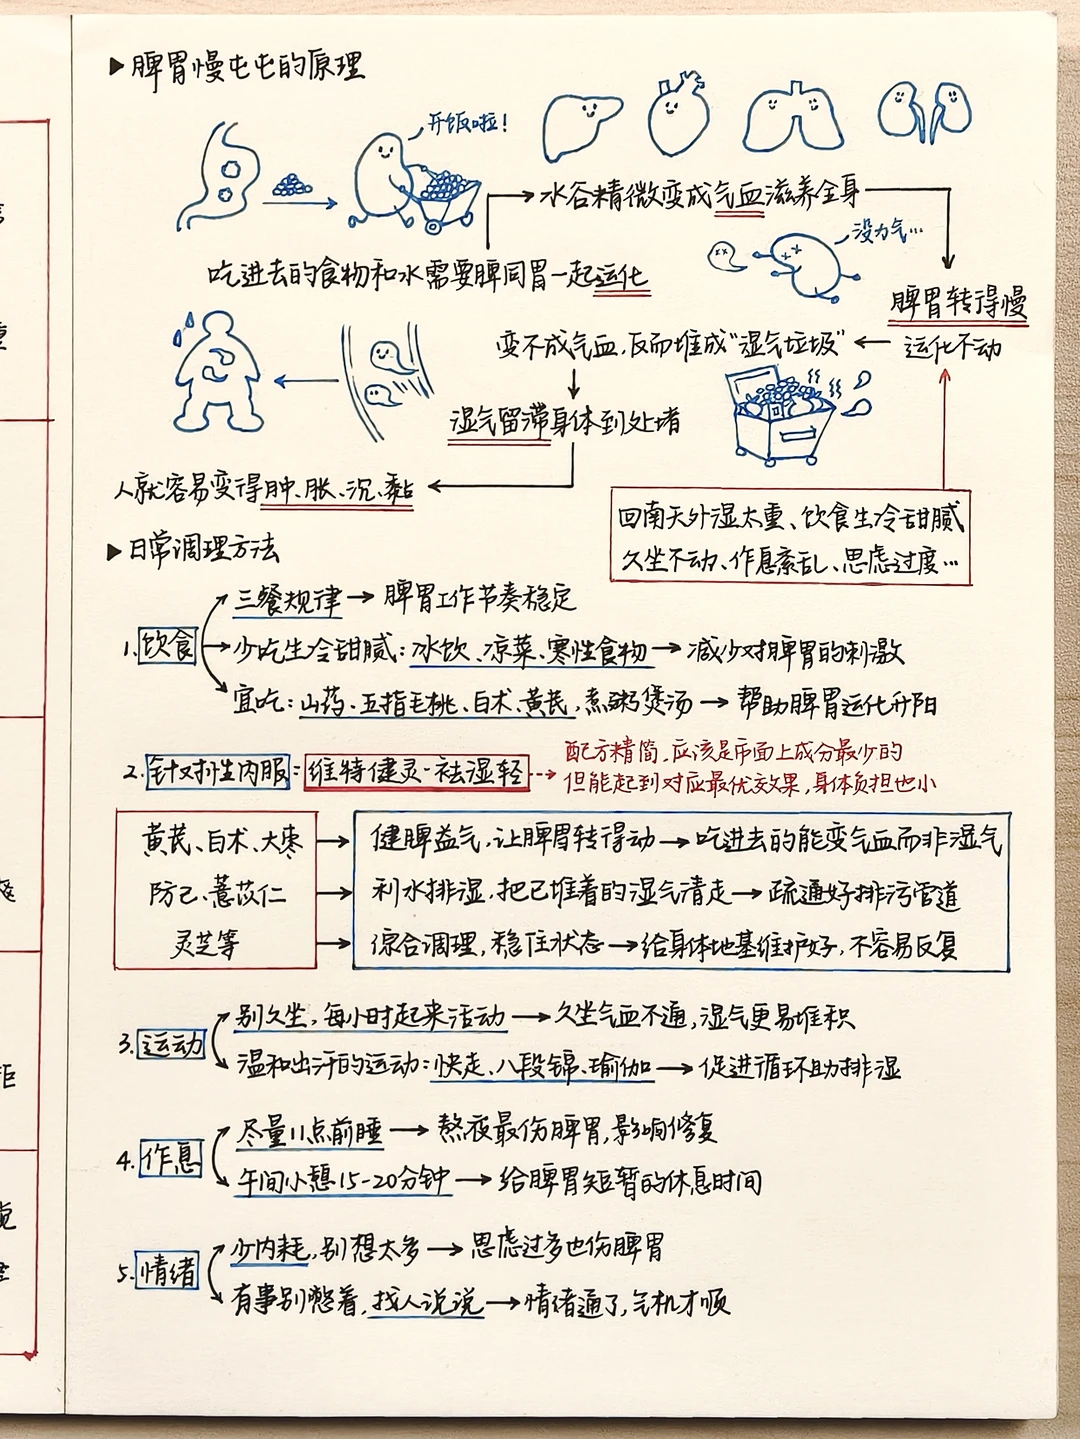 ▶脾胃慢屯屯的原理
开饭啦！
水谷精微变成气血滋养全身
没力气…
吃进去的食物和水需要脾同胃一起运化
脾胃转得慢
运化不动
变不成气血，反而堆成“湿气垃圾”
湿气留滞身体到处堵
人就容易变得肿、胀、沉、黏
回南天外湿太重、饮食生冷甜腻
久坐不动、作息紊乱、思虑过度…
▶日常调理方法
1.饮食
三餐规律→脾胃工作节奏稳定
少吃生冷甜腻：冰饮、凉菜、寒性食物→减少对脾胃的刺激
宜吃：山药、五指毛桃、白术、黄芪，煮粥煲汤→帮助脾胃运化升阳
2.针对性内服：维特健灵-祛湿轻
配方精简，应该是市面上成分最少的
但能起到对应最优效果，身体负担也小
黄芪、白术、大枣→健脾益气，让脾胃转得动→吃进去的能变气血而非湿气
防己、薏苡仁→利水排湿，把已堆着的湿气清走→疏通好排污管道
灵芝等→综合调理，稳住状态→给身体地基维护好，不容易反复
3.运动
别久坐，每小时起来活动→久坐气血不通，湿气更易堆积
温和出汗的运动：快走、八段锦、瑜伽→促进循环助排湿
4.作息
尽量11点前睡→熬夜最伤脾胃，影响修复
午间小憩15-20分钟→给脾胃短暂的休息时间
5.情绪
少内耗，别想太多→思虑过多也伤脾胃
有事别憋着，找人说说→情绪通了，气机才顺